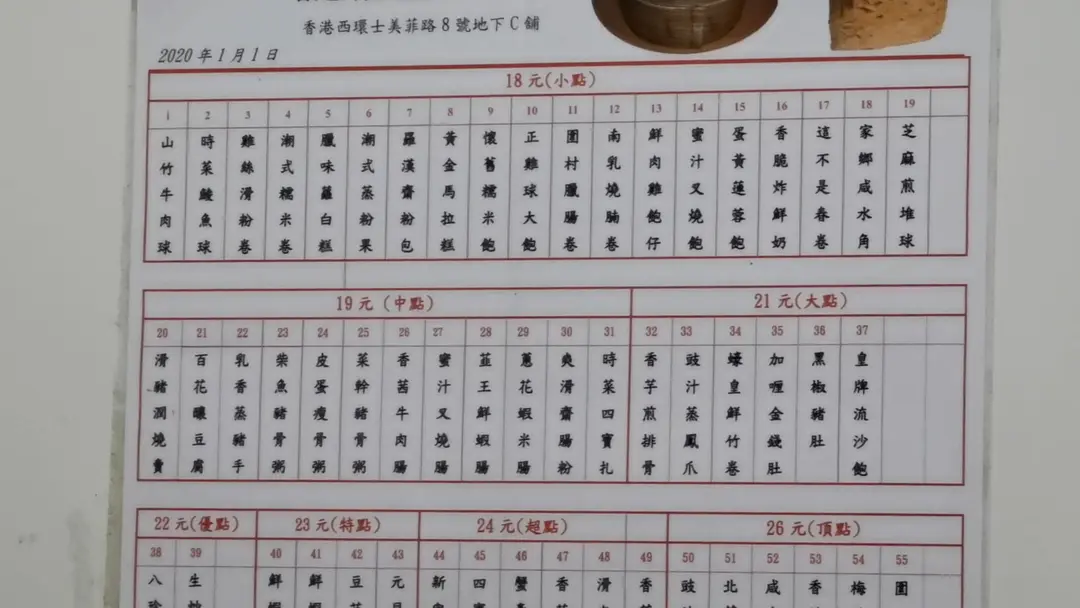 香港西環士美菲路8號地下C舖
2020年1月1日
18元(小點)
1 山竹牛肉球
2 時菜鯪魚球
3 雞絲滑粉卷
4 潮式糯米卷
5 臘味蘿白糕
6 潮式蒸粉果
7 羅漢齋粉包
8 黃金馬拉糕
9 懷舊糯米飽
10 正雞球大飽
11 圍村臘腸卷
12 南乳燒腩卷
13 鮮肉雞飽仔
14 蜜汁叉燒飽
15 蛋黃蓮蓉飽
16 香脆炸鮮奶
17 這不是春卷
18 家鄉咸水角
19 芝麻煎堆球
19元(中點)
20 滑豬潤燒賣
21 百花釀豆腐
22 乳香蒸豬手
23 柴魚豬骨粥
24 皮蛋瘦骨粥
25 菜幹豬骨粥
26 香茜牛肉腸
27 蜜汁叉燒腸
28 韮王鮮蝦腸
29 蔥花蝦米腸
30 爽滑齋腸粉
31 時菜四寶扎
21元(大點)
32 香芋煎排骨
33 豉汁蒸鳳爪
34 蠔皇鮮竹卷
35 加喱金錢肚
36 黑椒豬肚
37 皇牌流沙飽
22元(優點)
38 八
39 生
23元(特點)
40 鮮
41 鮮
42 豆
43 元
24元(超點)
44 新
45 四
46 蟹
47 香
48 滑
49 香
26元(頂點)
50 豉
51 北
52 咸
53 香
54 梅
55 圍